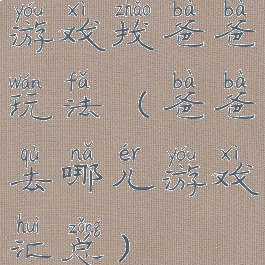 yóu xì zhǎo bà bà
游戏找爸爸
wán fǎ bà bà
玩法（爸爸
qù nǎ ér yóu xì
去哪儿游戏
huì zǒng
汇总）